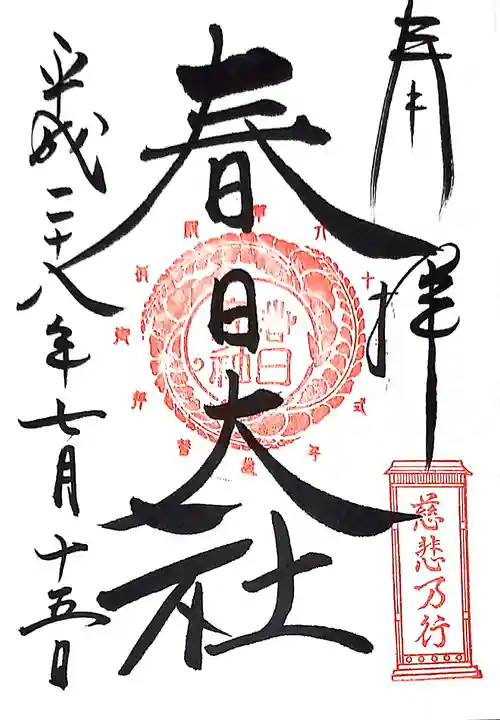 奉拝
慈悲乃行
春日大社
平成二十八年七月十五日